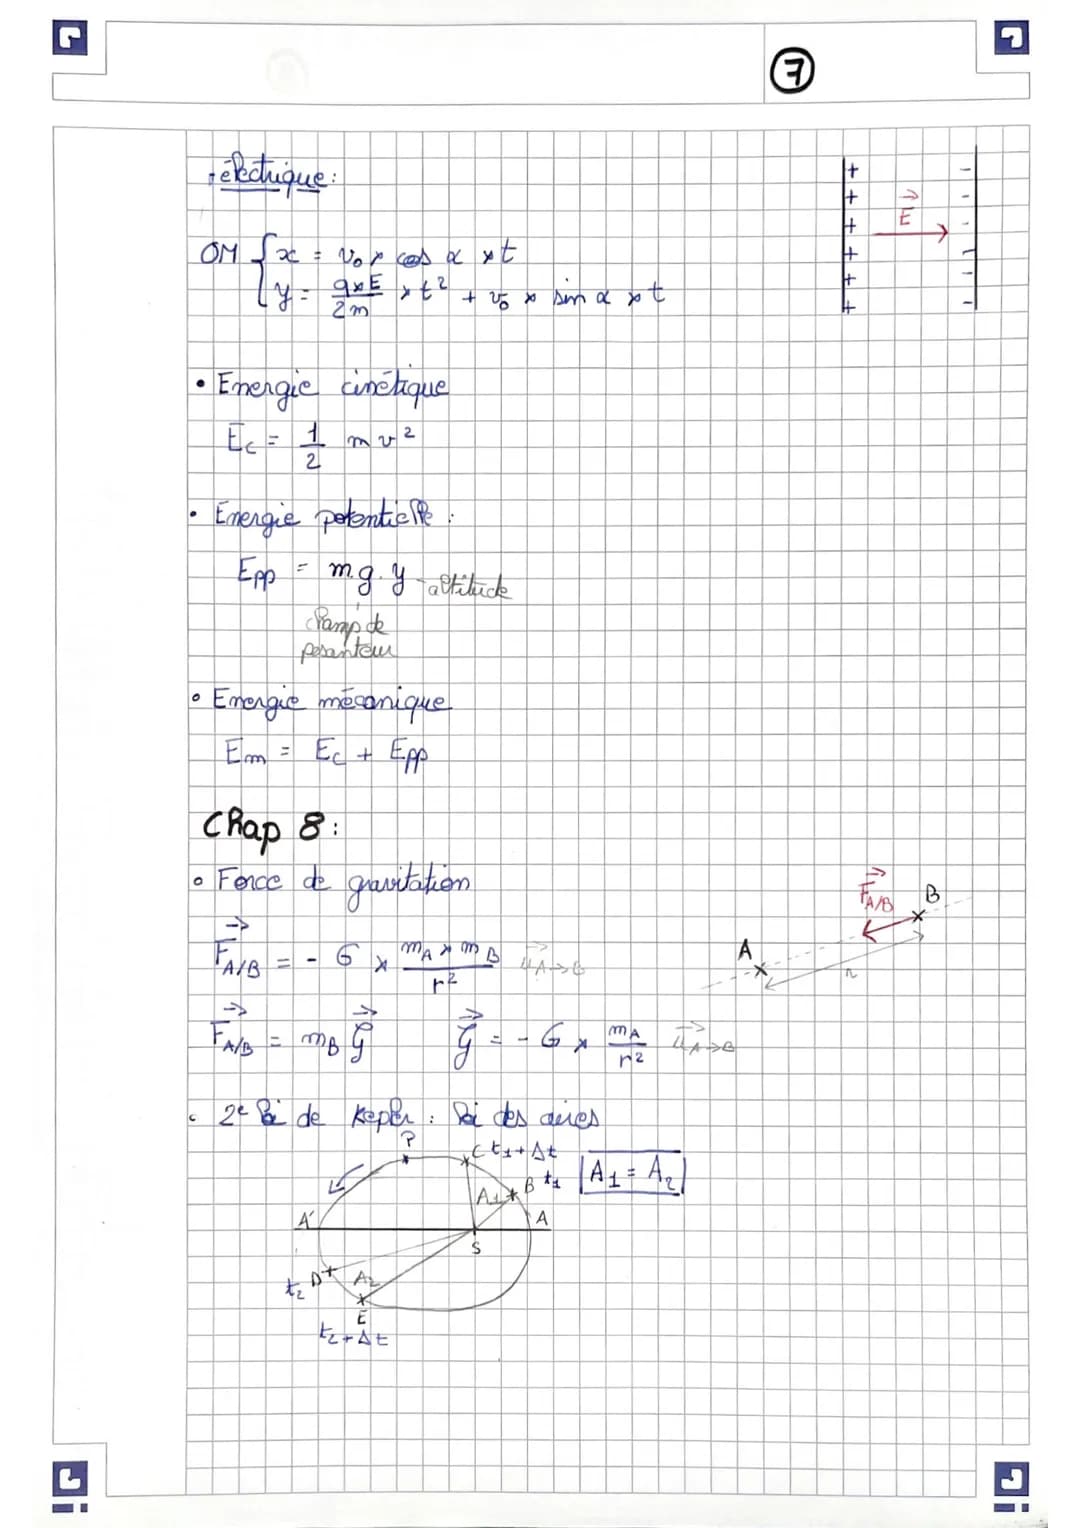 7
électrique :
OM { x = v₀ × cos α × t
y = q×E/2m × t² + v₀ × sin α × t
+ + + + + +
E⃗
- - - - - -
• Energie cinétique
Ec = 1/2 m v²
• Energie potentielle :
Epp = m.g.y - altitude
champ de
pesanteur
• Energie mécanique
Em = Ec + Epp
Chap 8 :
• Force de gravitation
F⃗A/B = - G × mA × mB / r² u⃗A→B
F⃗A/B B
A r
F⃗A/B = mB G⃗ G⃗ = - G × mA / r² u⃗A→B
• 2e loi de Kepler : loi des aires
P C t₁ + Δt
A₁ B t₁ A₁ = A₂
A' A
S
t₂ D A₂
E
t₂ + Δt